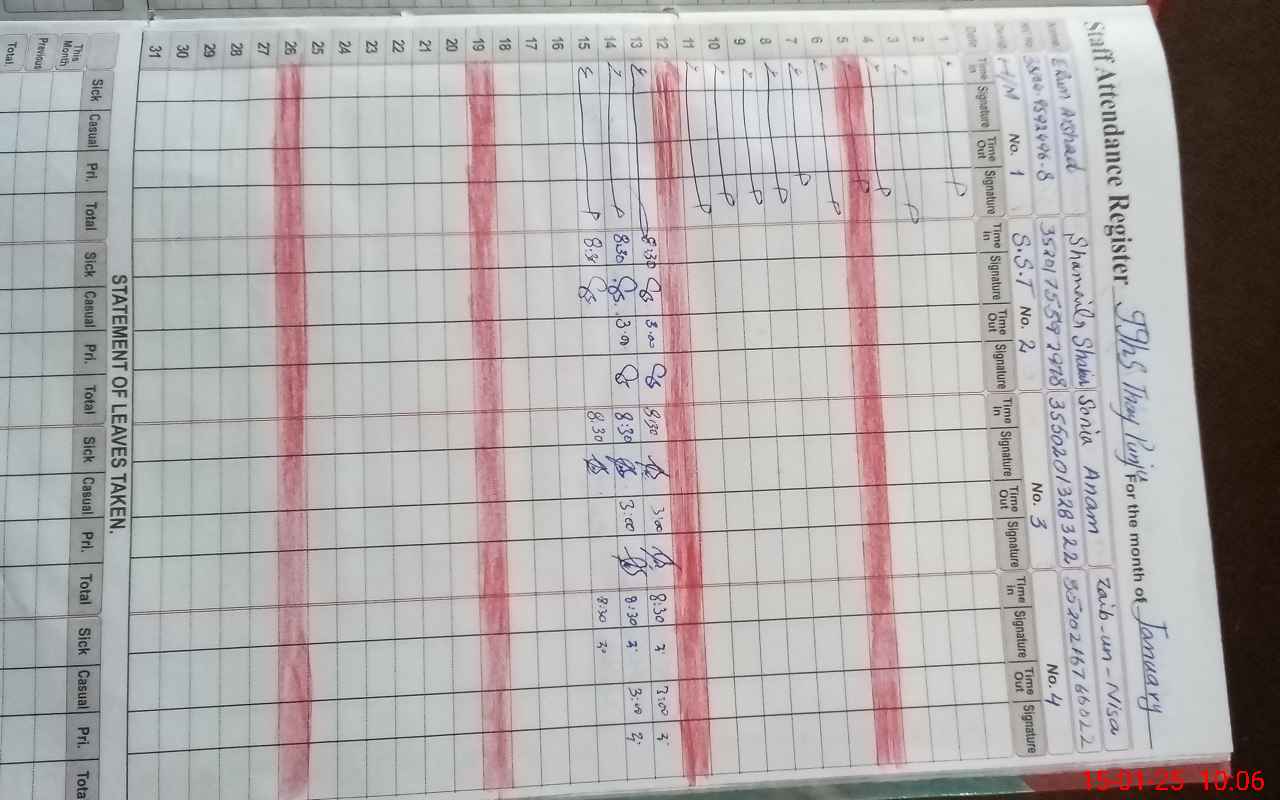 Staff Attendance Register For the month of January
Erum Arshad Shamaila Shaker Sonia Anam Zaib-un-Nisa
3520175592978 3550201328322 3520216766022
H/M No. 1 S.S.T No. 2 No. 3 No. 4
Date Time in Signature Time Out Signature Time in Signature Time Out Signature Time in Signature Time Out Signature Time in Signature Time Out Signature
1
2
3
4
5
6
7
8
9
10
11
12
13 8:30 3:00 8:30 3:00 8:30 3:00
14 8:30 3:00 8:30 3:00 8:30 3:00
15 8:30 8:30 8:30
16
17
18
19
20
21
22
23
24
25
26
27
28
29
30
31
STATEMENT OF LEAVES TAKEN.
Sick Casual Pri. Total Sick Casual Pri. Total Sick Casual Pri. Total Sick Casual Pri. Tota
This Month
Previous
Total
15-01-25 10:06